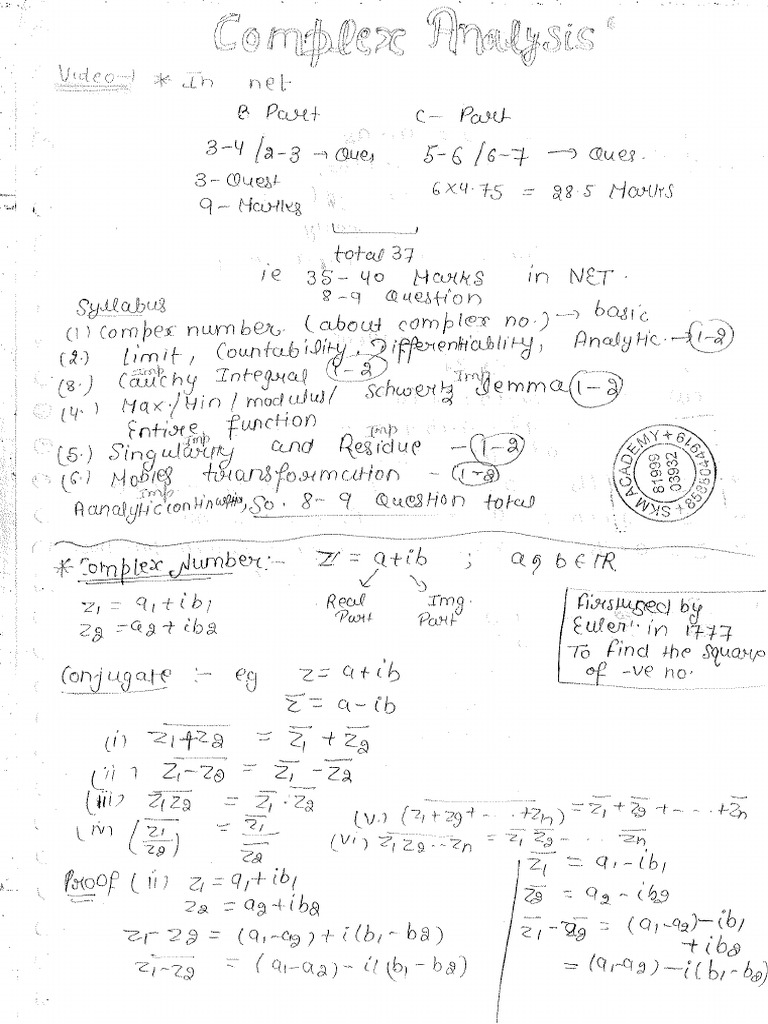 Complex Analysis
Video-1 * In net
B Part C- Part
3-4 /2-3 → Ques 5-6 /6-7 → Ques.
3-Quest 6×4.75 = 28.5 Marks
9- Marks
total 37
ie 35-40 Marks in NET.
8-9 Question
Syllabus
(1) Compex number. (about complex no.) → basic
(2.) limit, Countability, Differentiablity, Analytic. → (1-2)
(3.) Cauchy Integral (1-2) Imp
(4.) Max./Min/modulus/ Schwertz lemma (1-2) Imp
Entire function
(5.) Singularity and Residue - (1-2) Imp Imp
(6.) Mobies transformation - (1-2)
Imp
So. 8-9 Question total
SKM ACADEMY + 8585044919 +
81999
03932
* Complex Number:- Z = a+ib ; a, b ∈ IR
z1 = a1+ib1 Real Part Img. Part
z2 = a2+ib2
First used by
Euler in 1777
To find the square
of -ve no.
Conjugate :- eg z = a+ib
z̅ = a-ib
(i) \overline{z1+z2} = \overline{z1} + \overline{z2}
(ii) \overline{z1-z2} = \overline{z1} - \overline{z2}
(iii) \overline{z1z2} = \overline{z1}·\overline{z2}
(iv) \overline{(z1/z2)} = \overline{z1}/\overline{z2}
(v.) \overline{(z1+z2+-..+zn)} = \overline{z1}+\overline{z2}+-..+\overline{zn}
(vi) \overline{z1z2--zn} = \overline{z1} \overline{z2}-... \overline{zn}
Proof (ii) z1 = a1+ib1
z2 = a2+ib2
z1-z2 = (a1-a2)+i(b1-b2)
\overline{z1-z2} = (a1-a2)-i(b1-b2)
\overline{z1} = a1-ib1
\overline{z2} = a2-ib2
\overline{z1}-\overline{z2} = (a1-a2)-ib1
+ib2
= (a1-a2)-i(b1-b2)